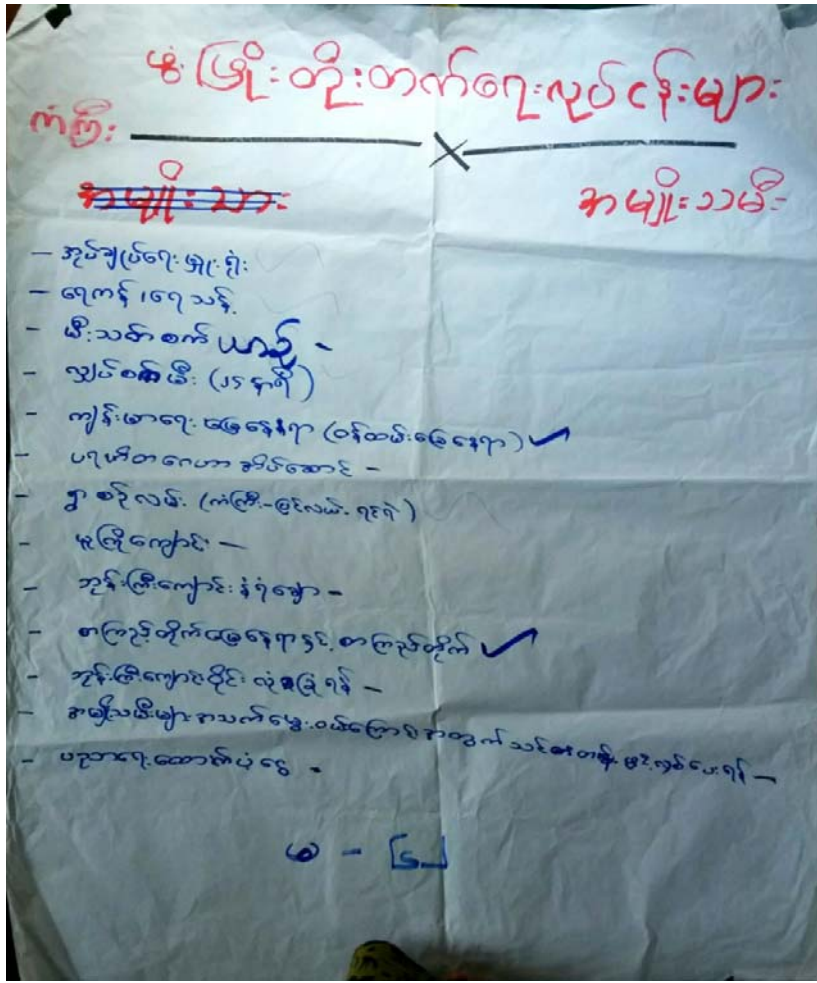 ဖွံ့ဖြိုးတိုးတက်ရေးလုပ်ငန်းများ
ကံကြီး
အမျိုးသား အမျိုးသမီး
- အုပ်ချုပ်ရေးမှူးရုံး
- ရေကန်၊ရေသန့်
- မီးသတ်စက် ယာဉ် -
- လျှပ်စစ်မီး (၂၄ နာရီ)
- ကျန်းမာရေး မြေနေရာ (ဝန်ထမ်းမြေနေရာ) ✓
- ပရဟိတဂေဟာ အိပ်ဆောင် -
- ရွာစဉ်လမ်း (ကံကြီး-မြင်လယ်
- မူကြိုကျောင်း -
- ဘုန်းကြီးကျောင်း နံရံ -
- စာကြည့်တိုက်မြေနေရာနှင့် စာကြည့်တိုက် ✓
- ဘုန်းကြီးကျောင်းဝိုင်း လုံခြုံရန် -
- အမျိုးသမီးများ အသက်မွေးဝမ်းကြောင်းအတွက် သင်တန်း ဖွင့်လှစ်ပေးရန် -
- ပညာရေးထောက်ပံ့ငွေ -
မ -